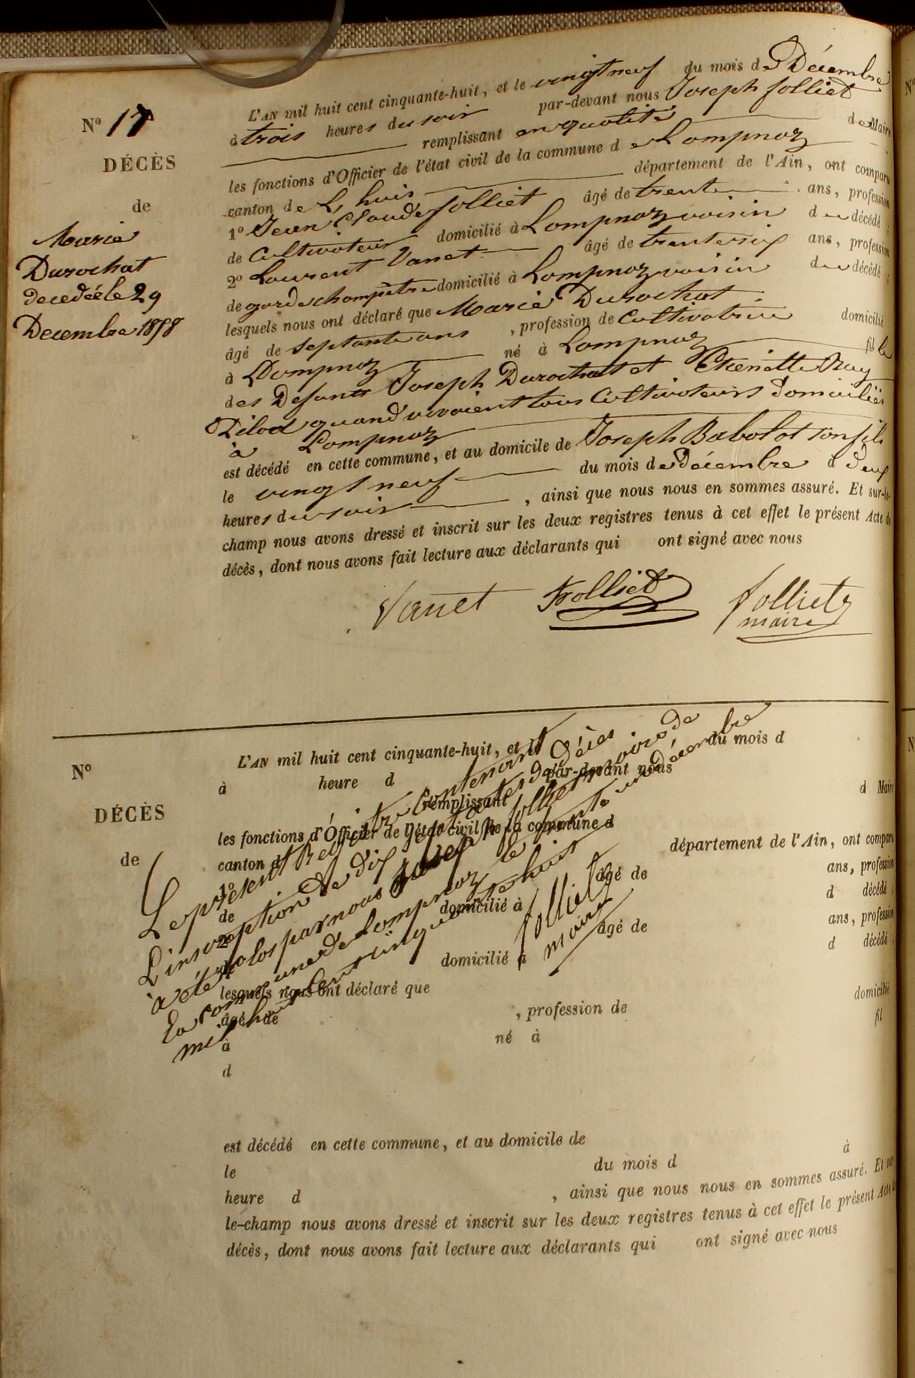 N° 17
DÉCÈS
de
Marie
Durochat
decedée le 29
Decembre 1858
L'AN mil huit cent cinquante-huit, et le vingt neuf du mois de Décembre
à trois heures du soir par-devant nous Joseph folliet
remplissant en qualité de Maire
les fonctions d'Officier de l'état civil de la commune de Lompnaz
canton de L'huis département de l'Ain, ont comparu
1° Jean Claude folliet âgé de trente ans, profession
de Cultivateur domicilié à Lompnaz voisin du décédé
2° Laurent Vanet âgé de trente six ans, profession
de garde champêtre domicilié à Lompnaz voisin du décédé
lesquels nous ont déclaré que Marie Durochat
âgé de septante ans, profession de Cultivatrice domicilié
à Lompnaz né à Lompnaz fille
des Defunts Joseph Durochat et Etienette Ray
quand vivoient tous Cultivateurs domiciliés
à Lompnaz
est décédé en cette commune, et au domicile de Joseph Babolat son fils
le vingt neuf du mois de décembre à deux
heures du soir, ainsi que nous nous en sommes assuré. Et sur-le-
champ nous avons dressé et inscrit sur les deux registres tenus à cet effet le présent Acte de
décès, dont nous avons fait lecture aux déclarants qui ont signé avec nous
Vanet folliet folliet
maire
N°
DÉCÈS
de
L'AN mil huit cent cinquante-huit, et le du mois d
à heure d par-devant nous
remplissant d Maire
les fonctions d'Officier de l'état civil de la commune d
canton d département de l'Ain, ont comparu
1° âgé de ans, profession
de domicilié à d décédé
2° âgé de ans, profession
de domicilié à d décédé
lesquels nous ont déclaré que
âgé de , profession de domicilié
à né à fil
d
Le présent Registre Contenant
L'inscription de dix sept actes de décès
à été clos par nous Joseph folliet maire de
La commune de Lompnaz le trente un décembre
mil huit cent cinquante huit
folliet
maire
est décédé en cette commune, et au domicile de
le du mois d à
heure d , ainsi que nous nous en sommes assuré. Et sur-
le-champ nous avons dressé et inscrit sur les deux registres tenus à cet effet le présent Acte de
décès, dont nous avons fait lecture aux déclarants qui ont signé avec nous